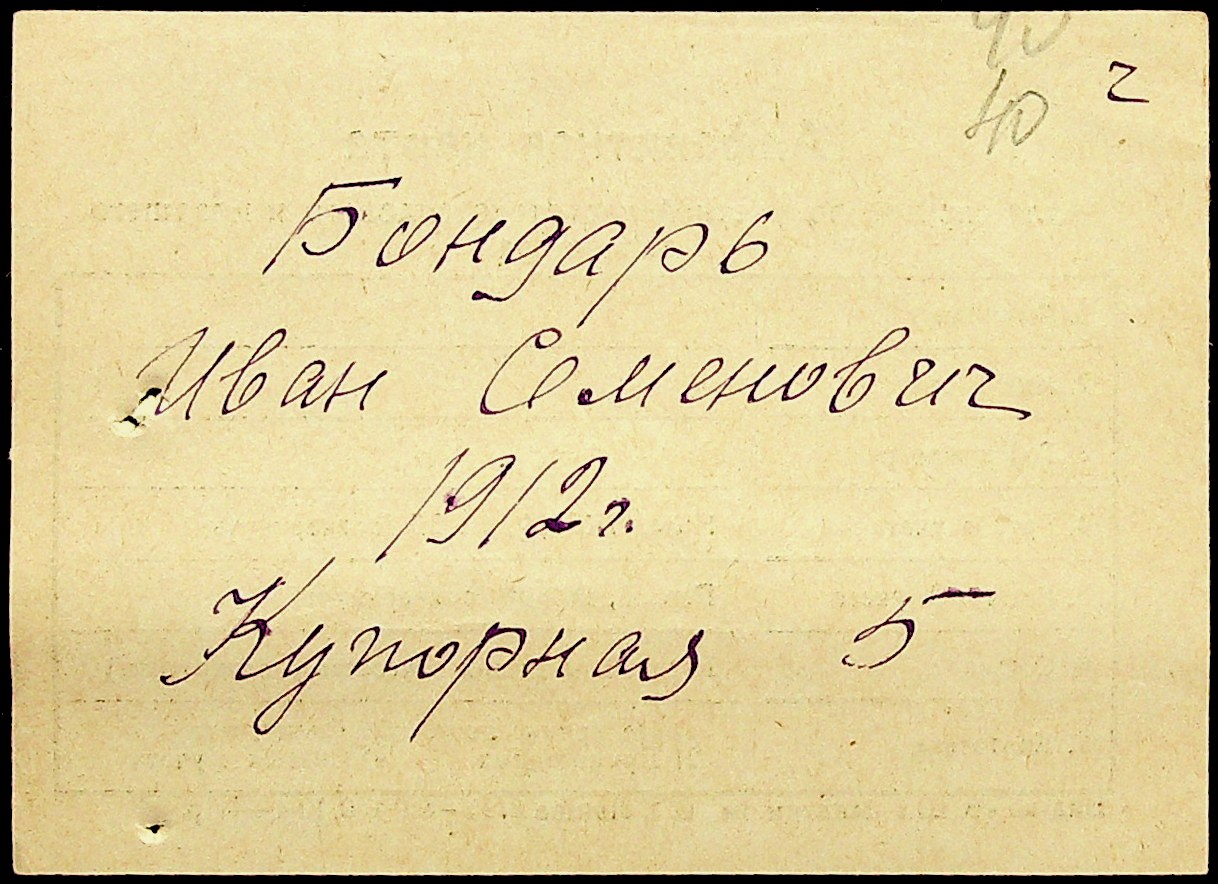 40
40
г
Бондарь
Иван Семенович
1912 г.
Купорная 5